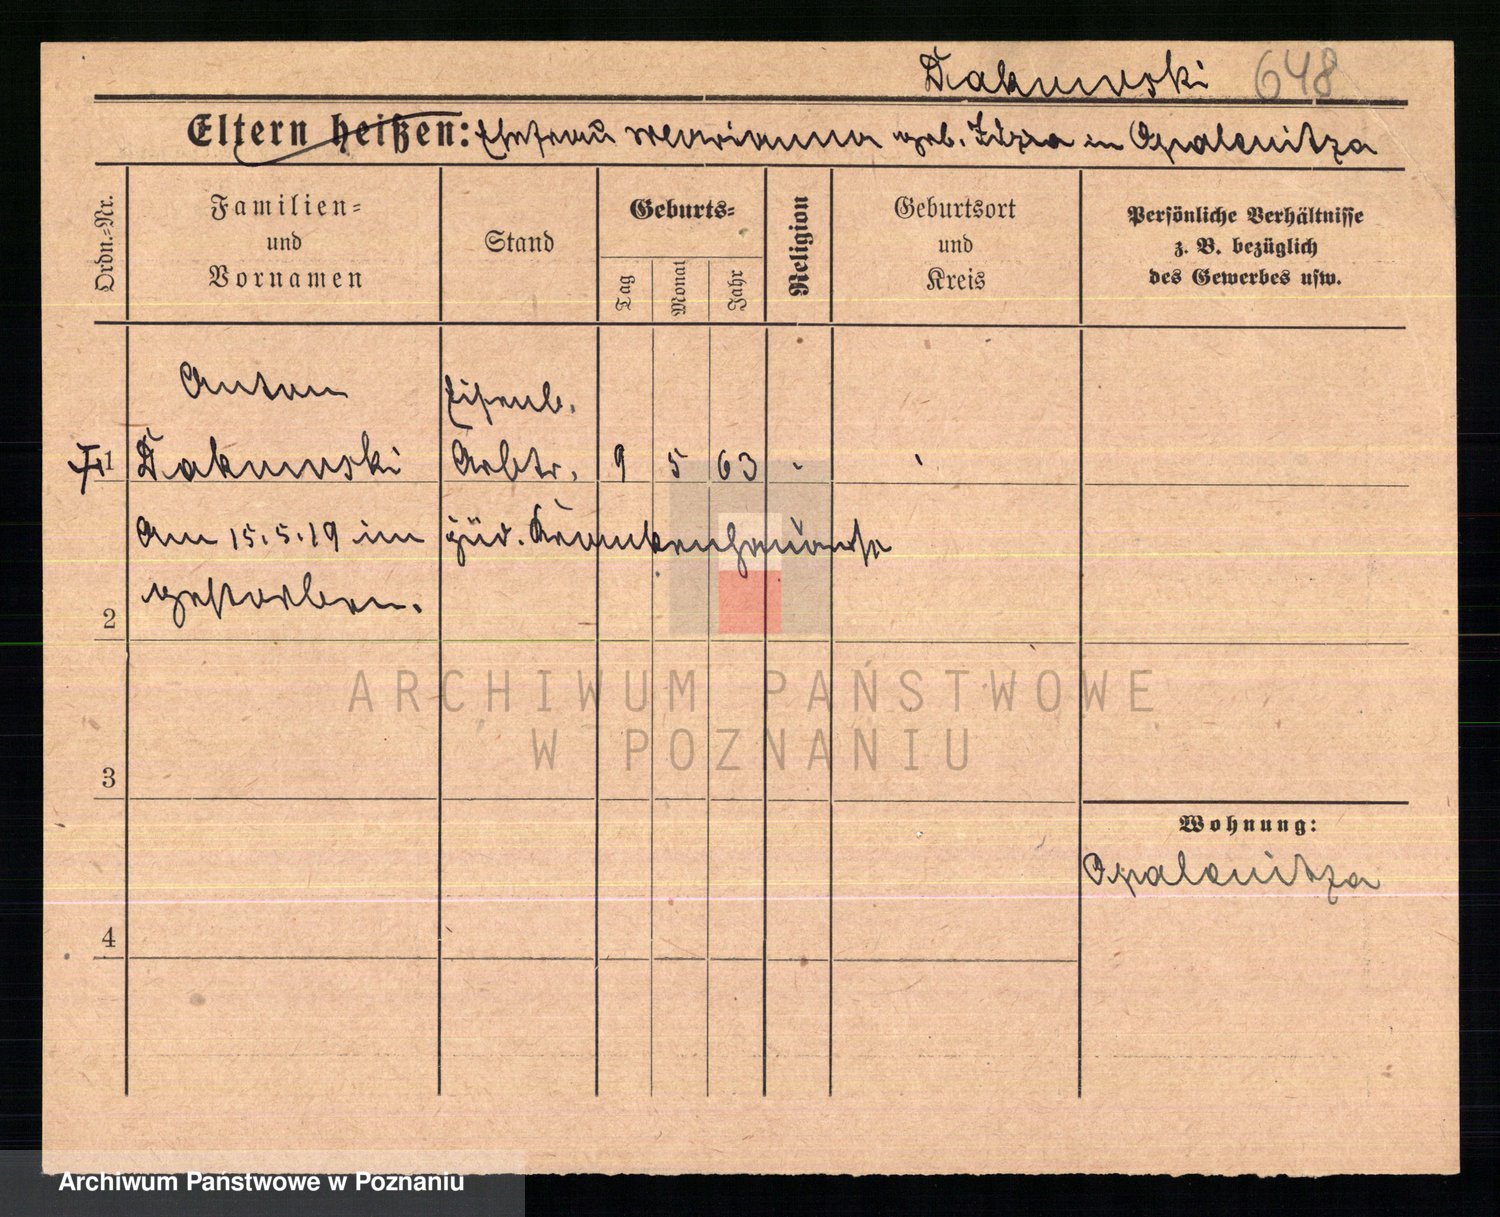 Dakowski 648
Eltern heißen: Ehefrau Marianna geb. in Opalenitza
Ordn.-Nr.
Familien-
und
Vornamen
Stand
Geburts-
Tag
Monat
Jahr
Religion
Geburtsort
und
Kreis
Persönliche Verhältnisse
z. B. bezüglich
des Gewerbes usw.
Anton Eisenb.
1 Dakowski Arbtr. 9 5 63 -
Am 15.5.19 im jüd. Krankenhause
gestorben.
2
ARCHIWUM PAŃSTWOWE
W POZNANIU
3
Wohnung:
Opalenitza
4
Archiwum Państwowe w Poznaniu